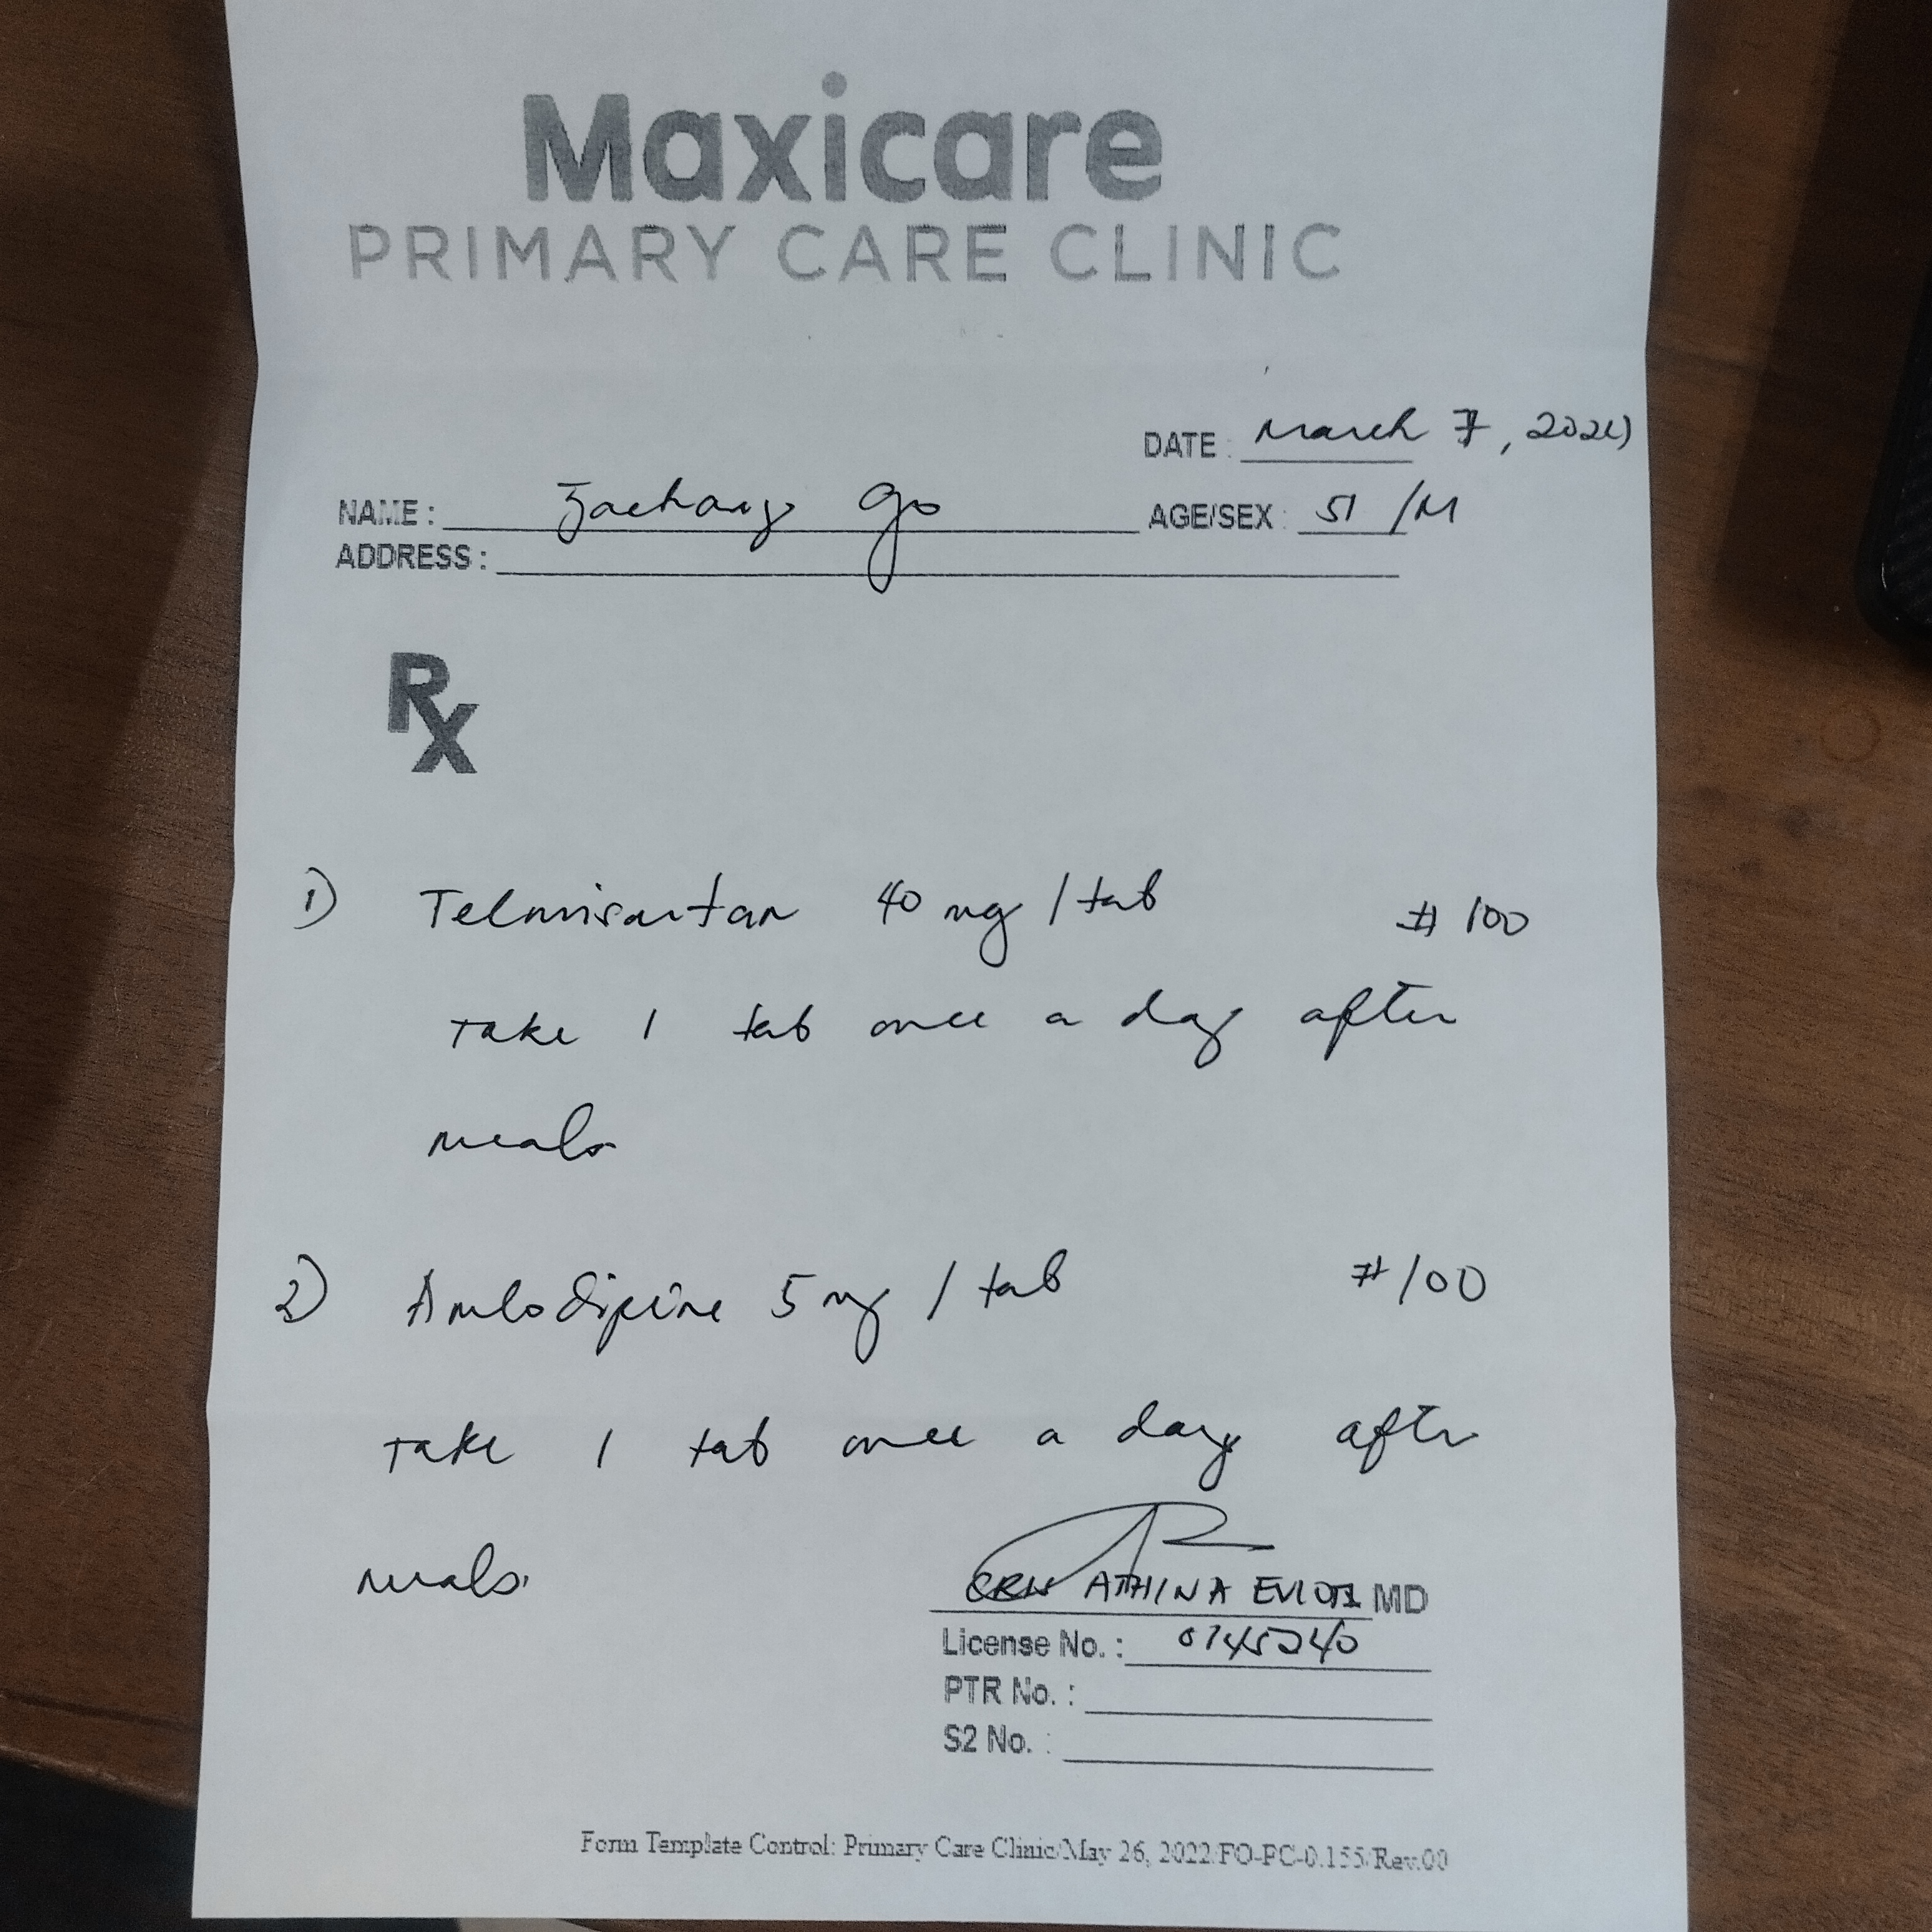 Maxicare
PRIMARY CARE CLINIC
DATE : March 7,
NAME : Zachary Go AGE/SEX : 51 /M
ADDRESS :
Rx
1) Telmisartan 40 mg / tab # 100
Take 1 tab once a day after
meals
2) Amlodipine 5 mg / tab # 100
Take 1 tab once a day after
meals.
ATHINA MD
License No. : 0145240
PTR No. :
S2 No. :
Form Template Control: Primary Care Clinic/May 26, 2022/FO-PC-0.155/Rev.00